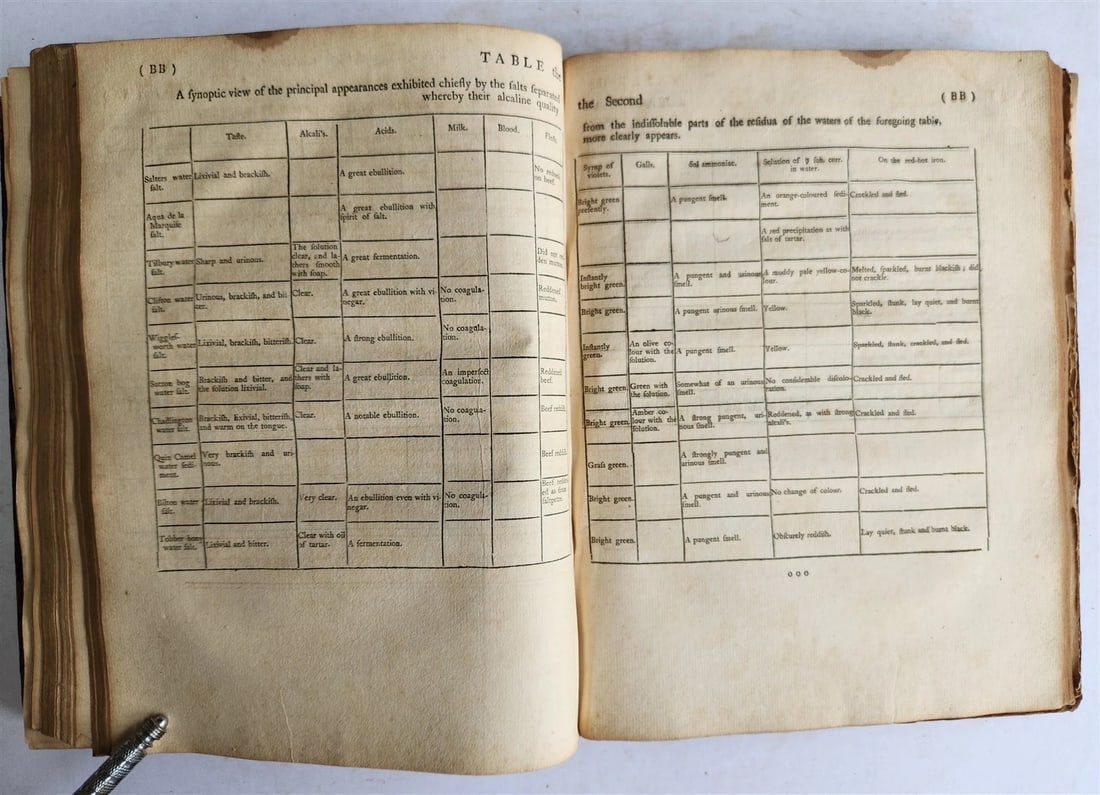 ( BB )
TABLE the
A ſynoptic view of the principal appearances exhibited chiefly by the ſalts ſeparated
whereby their alcaline quality
Taſte. Alcali's. Acids. Milk. Blood. Fleſh.
Salters water ſalt. Lixivial and brackiſh. A great ebullition.
Aqua de la Marquiſe ſalt. A great ebullition with ſpirit of ſalt.
Tilbury water ſalt. Sharp and urinous. The ſolution clear, and lathers ſmooth with ſoap. A great fermentation.
Clifton water ſalt. Urinous, brackiſh, and bitter. Clear. A great ebullition with vinegar. No coagulation. Reddened mutton.
Wiggleſworth water ſalt. Lixivial, brackiſh, bitteriſh. Clear. A ſtrong ebullition. No coagulation.
Sutton bog water ſalt. Brackiſh and bitter, and the ſolution lixivial. Clear and lathers with ſoap. A great ebullition. An imperfect coagulation. Reddened beef.
Chadlington water ſalt. Brackiſh, lixivial, bitteriſh, and warm on the tongue. Clear. A notable ebullition. No coagulation. Beef reddiſh
Quin Camel water ſediment. Very brackiſh and urinous. Beef reddiſh
Bilton water ſalt. Lixivial and brackiſh. Very clear. An ebullition even with vinegar. No coagulation.
Tobber bony water ſalt. Lixivial and bitter. Clear with oil of tartar. A fermentation.
the Second
( BB )
from the indiſſoluble parts of the reſidua of the waters of the foregoing table,
more clearly appears.
Syrup of violets. Galls. Sal ammoniac. Solution of ☿ ſub. corr. in water. On the red-hot iron.
Bright green preſently. A pungent ſmell. An orange-coloured ſediment. Crackled and fled.
A red precipitation as with ſalt of tartar.
Inſtantly bright green. A pungent and urinous ſmell. A muddy pale yellow-colour. Melted, ſparkled, burnt blackiſh; did not crackle.
Bright green. A pungent urinous ſmell. Yellow. Sparkled, ſtunk, lay quiet, and burnt black.
Inſtantly green. An olive colour with the ſolution. A pungent ſmell. Yellow. Sparkled, ſtunk, crackled, and fled.
Bright green. Green with the ſolution. Somewhat of an urinous ſmell. No conſiderable diſcolouration. Crackled and fled.
Bright green. Amber colour with the ſolution. A ſtrong pungent, urinous ſmell. Reddened, as with ſtrong alcali's. Crackled and fled.
Graſs green. A ſtrongly pungent and urinous ſmell.
Bright green. A pungent and urinous ſmell. No change of colour. Crackled and fled.
Bright green. A pungent ſmell. Obſcurely reddiſh. Lay quiet, ſtunk and burnt black.
o o o